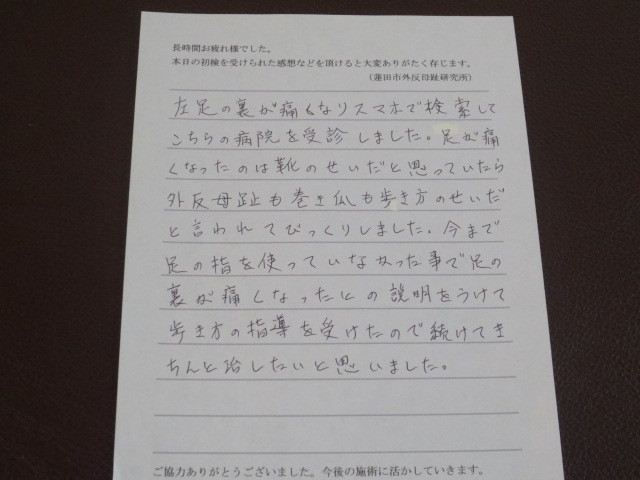 長時間お疲れ様でした。
本日の初検を受けられた感想などを頂けると大変ありがたく存じます。
（蓮田市外反母趾研究所）
左足の裏が痛くなりスマホで検索して
こちらの病院を受診しました。足が痛
くなったのは靴のせいだと思っていたら
外反母趾も巻き爪も歩き方のせいだ
と言われてびっくりしました。今まで
足の指を使っていなかった事で足の
裏が痛くなったとの説明をうけて
歩き方の指導を受けたので続けてき
ちんと治したいと思いました。
ご協力ありがとうございました。今後の施術に活かしていきます。